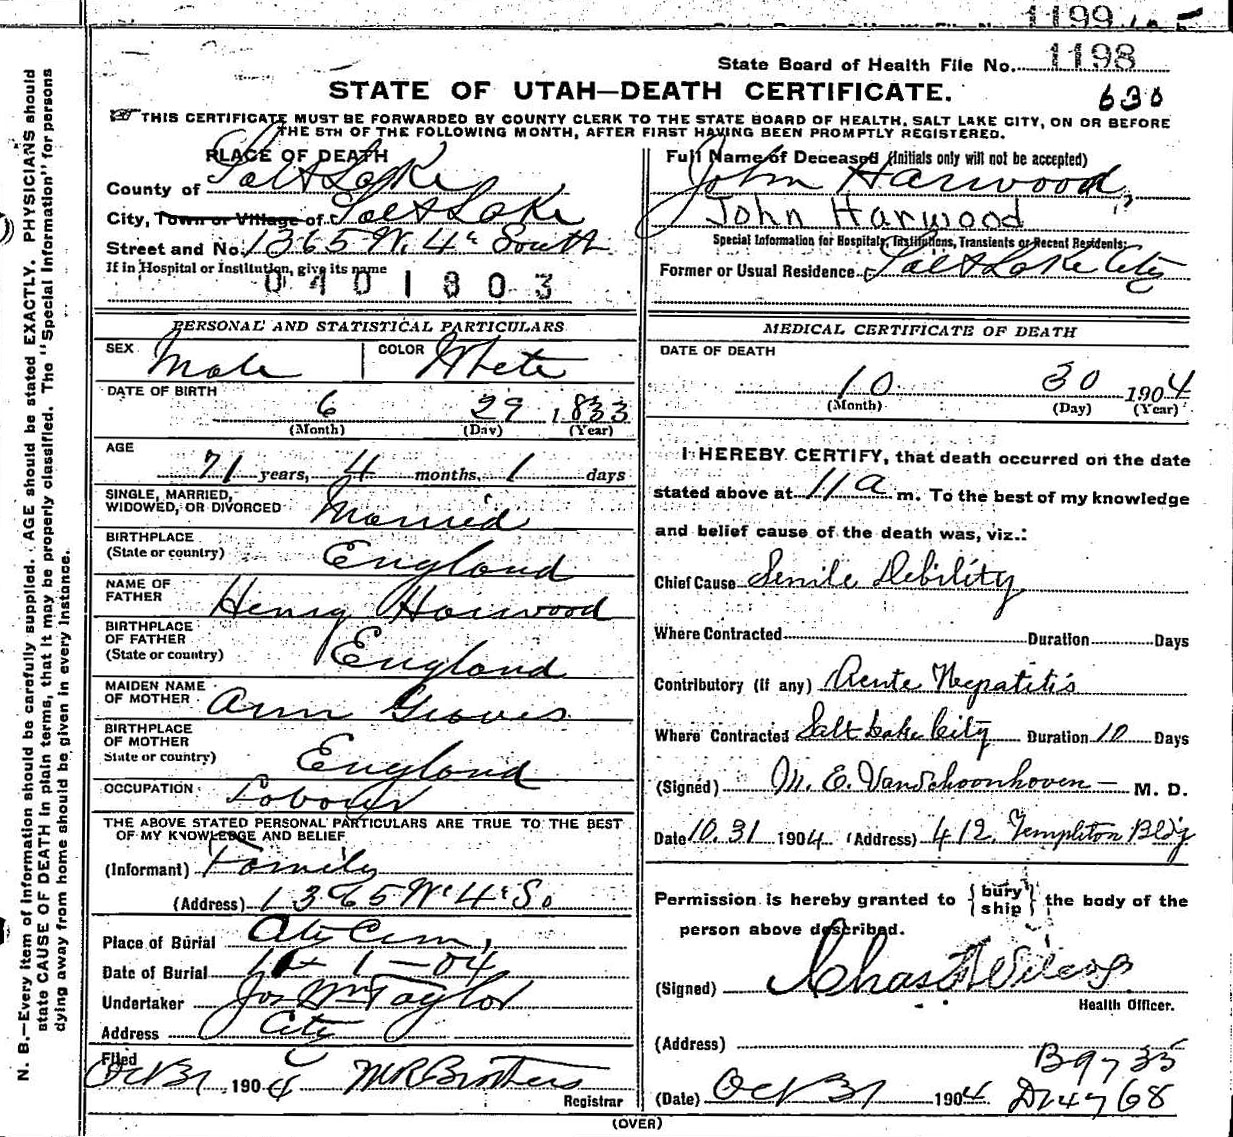 1199
State Board of Health File No. 1198
STATE OF UTAH—DEATH CERTIFICATE.
630
THIS CERTIFICATE MUST BE FORWARDED BY COUNTY CLERK TO THE STATE BOARD OF HEALTH, SALT LAKE CITY, ON OR BEFORE
THE 5TH OF THE FOLLOWING MONTH, AFTER FIRST HAVING BEEN PROMPTLY REGISTERED.
PLACE OF DEATH
County of Salt Lake
City, Town or Village of Salt Lake
Street and No. 1365 W. 4th South
If in Hospital or Institution, give its name
0401803
PERSONAL AND STATISTICAL PARTICULARS
SEX Male COLOR White
DATE OF BIRTH
6 29 1833
(Month) (Day) (Year)
AGE
71 years, 4 months, 1 days
SINGLE, MARRIED,
WIDOWED, OR DIVORCED Married
BIRTHPLACE
(State or country) England
NAME OF
FATHER Henry Harwood
BIRTHPLACE
OF FATHER
(State or country) England
MAIDEN NAME
OF MOTHER Ann Groves
BIRTHPLACE
OF MOTHER
State or country) England
OCCUPATION Laborer
THE ABOVE STATED PERSONAL PARTICULARS ARE TRUE TO THE BEST
OF MY KNOWLEDGE AND BELIEF
(Informant) Family
(Address) 1365 W. 4th So
Place of Burial City Cem,
Date of Burial 1 - 04
Undertaker Jos Wm Taylor
Address City
Filed
Oct 31 1904 M R Brothers
Registrar
Full Name of Deceased (Initials only will not be accepted)
John Harwood
John Harwood
Special Information for Hospitals, Institutions, Transients or Recent Residents:
Former or Usual Residence Salt Lake City
MEDICAL CERTIFICATE OF DEATH
DATE OF DEATH
10 30 1904
(Month) (Day) (Year)
I HEREBY CERTIFY, that death occurred on the date
stated above at 11 a m. To the best of my knowledge
and belief cause of the death was, viz.:
Chief Cause Senile Debility
Where Contracted Duration Days
Contributory (if any) Acute Hepatitis
Where Contracted Salt Lake City Duration 10 Days
(Signed) M. E. Van Schoonhoven — M. D.
Date 10.31 1904 (Address) 412 Templeton Bldg
Permission is hereby granted to {bury ship} the body of the
person above described.
(Signed) Chas Wilcox
Health Officer.
(Address)
B9735
(Date) Oct 31 1904
D14768
(OVER)
N. B.—Every item of information should be carefully supplied. AGE should be stated EXACTLY. PHYSICIANS should
state CAUSE OF DEATH in plain terms, that it may be properly classified. The "Special Information" for persons
dying away from home should be given in every instance.